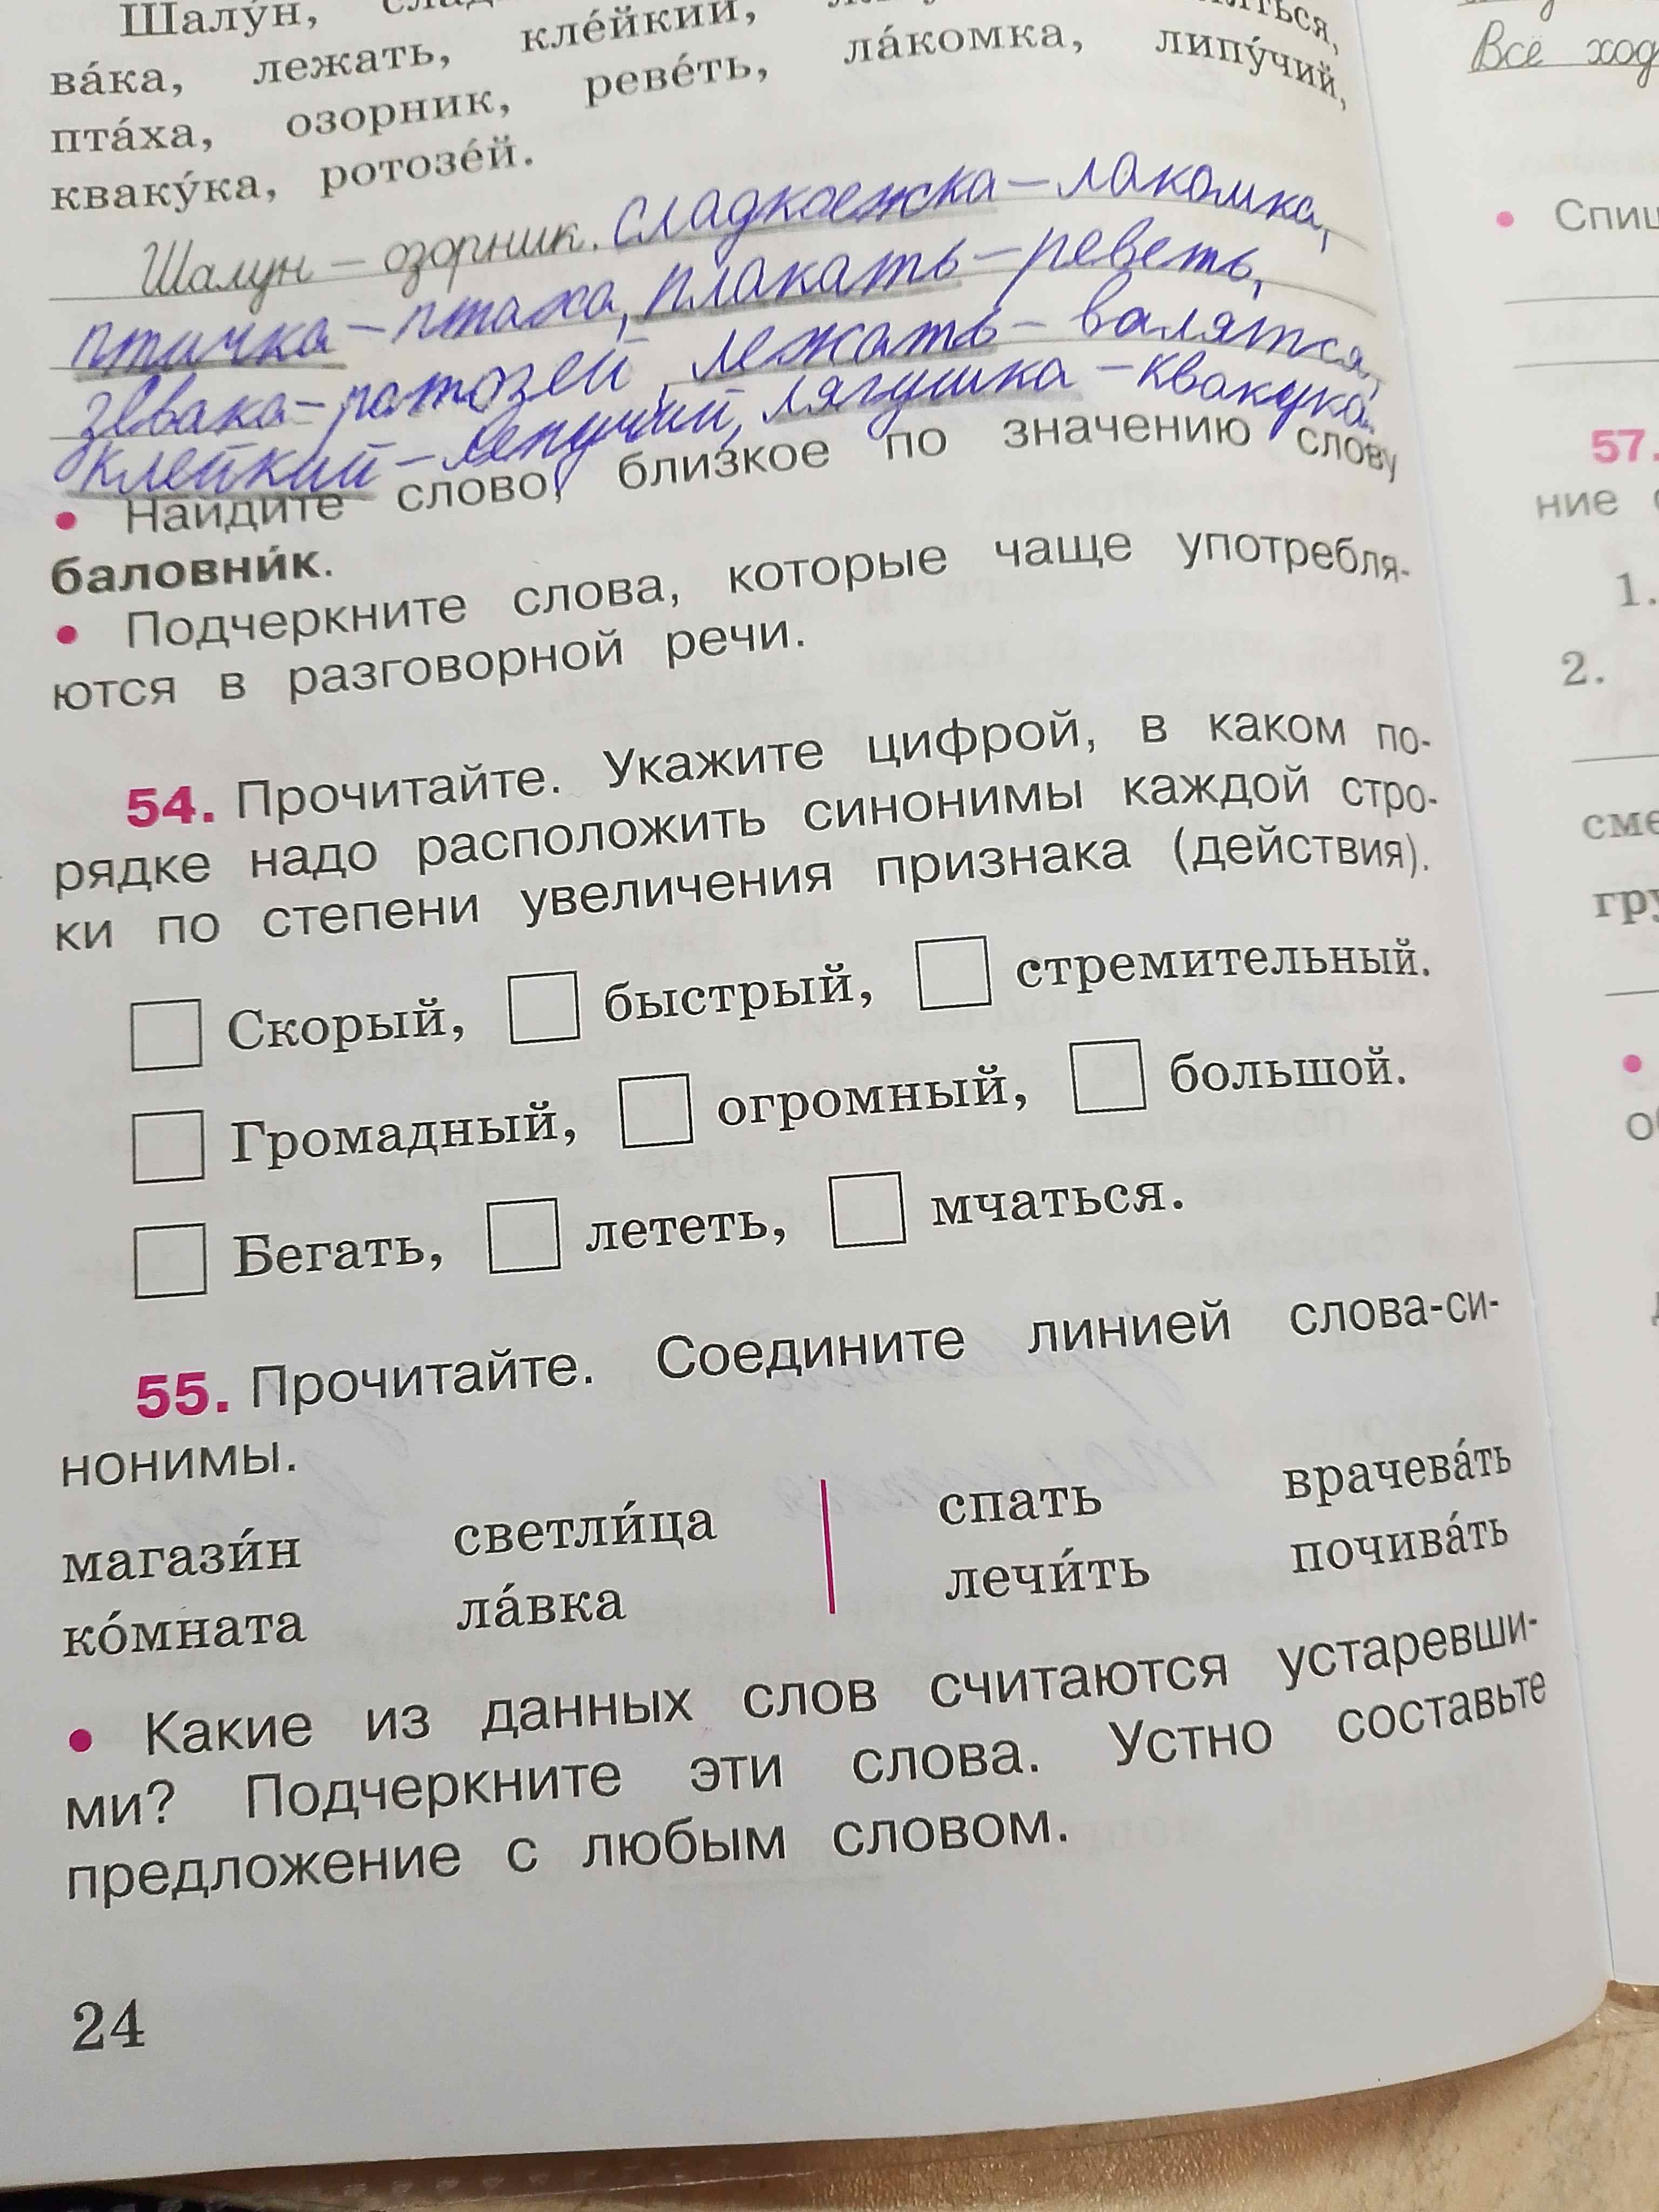 Шалу́н,
ва́ка, лежать, кле́йкий,
пта́ха, озорник, реве́ть, ла́комка, липу́чий,
кваку́ка, ротозе́й.
Шалун – озорник. сладкоежка – лакомка,
птичка – птаха, плакать – реветь,
зевака – ратозей, лежать – валятся,
клейкий – липучий, лягушка – квакука.
• Найдите слово, близкое по значению слову
баловни́к.
• Подчеркните слова, которые чаще употребля-
ются в разговорной речи.
54. Прочитайте. Укажите цифрой, в каком по-
рядке надо расположить синонимы каждой стро-
ки по степени увеличения признака (действия).
Скорый, быстрый, стремительный.
Громадный, огромный, большой.
Бегать, лететь, мчаться.
55. Прочитайте. Соедините линией слова-си-
нонимы.
магази́н светли́ца спать врачева́ть
ко́мната ла́вка лечи́ть почива́ть
• Какие из данных слов считаются устаревши-
ми? Подчеркните эти слова. Устно составьте
предложение с любым словом.
24
Всё
•
57.
ние
1.
2.
•